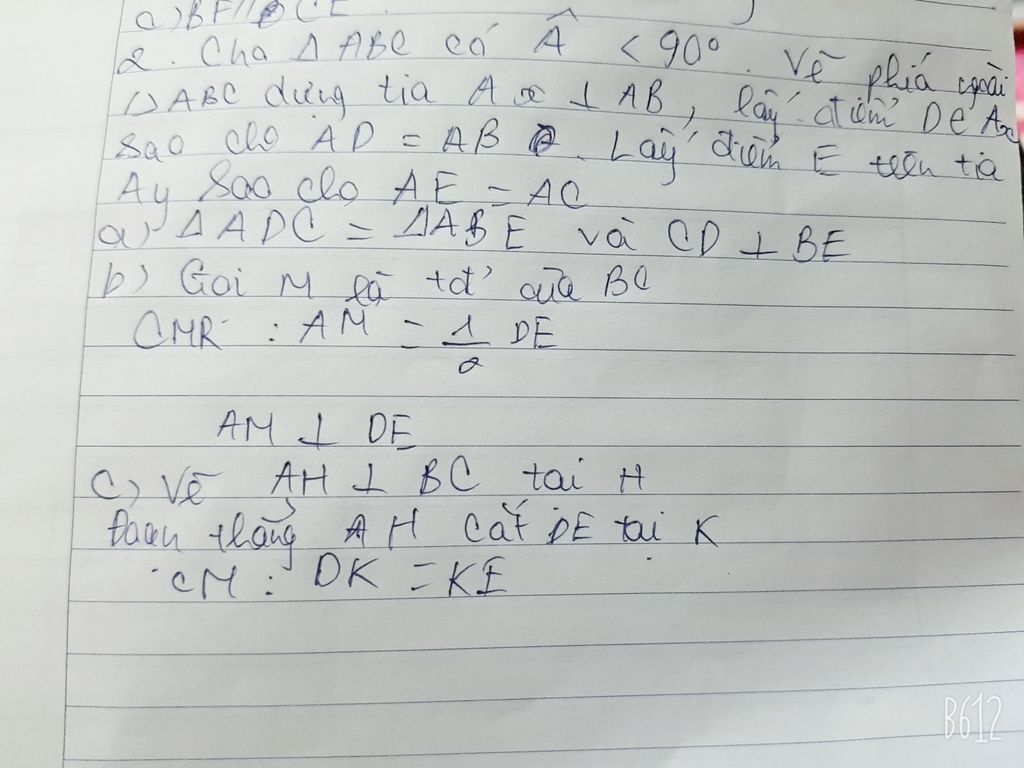 c) BF // CE
2. Cho Δ ABC có Â < 90°. Vẽ phiá ngoài
Δ ABC dựng tia Ax ⊥ AB, lấy điểm D ∈ Ax
sao cho AD = AB. Lấy điểm E trên tia
Ay sao cho AE = AC
a) Δ ADC = Δ ABE và CD ⊥ BE
b) Gọi M là tđ' của BC
CMR : AM = 1/2 DE
AM ⊥ DE
c) Vẽ AH ⊥ BC tại H
Đoạn thẳng AH cắt DE tại K
CM : DK = KE
B612